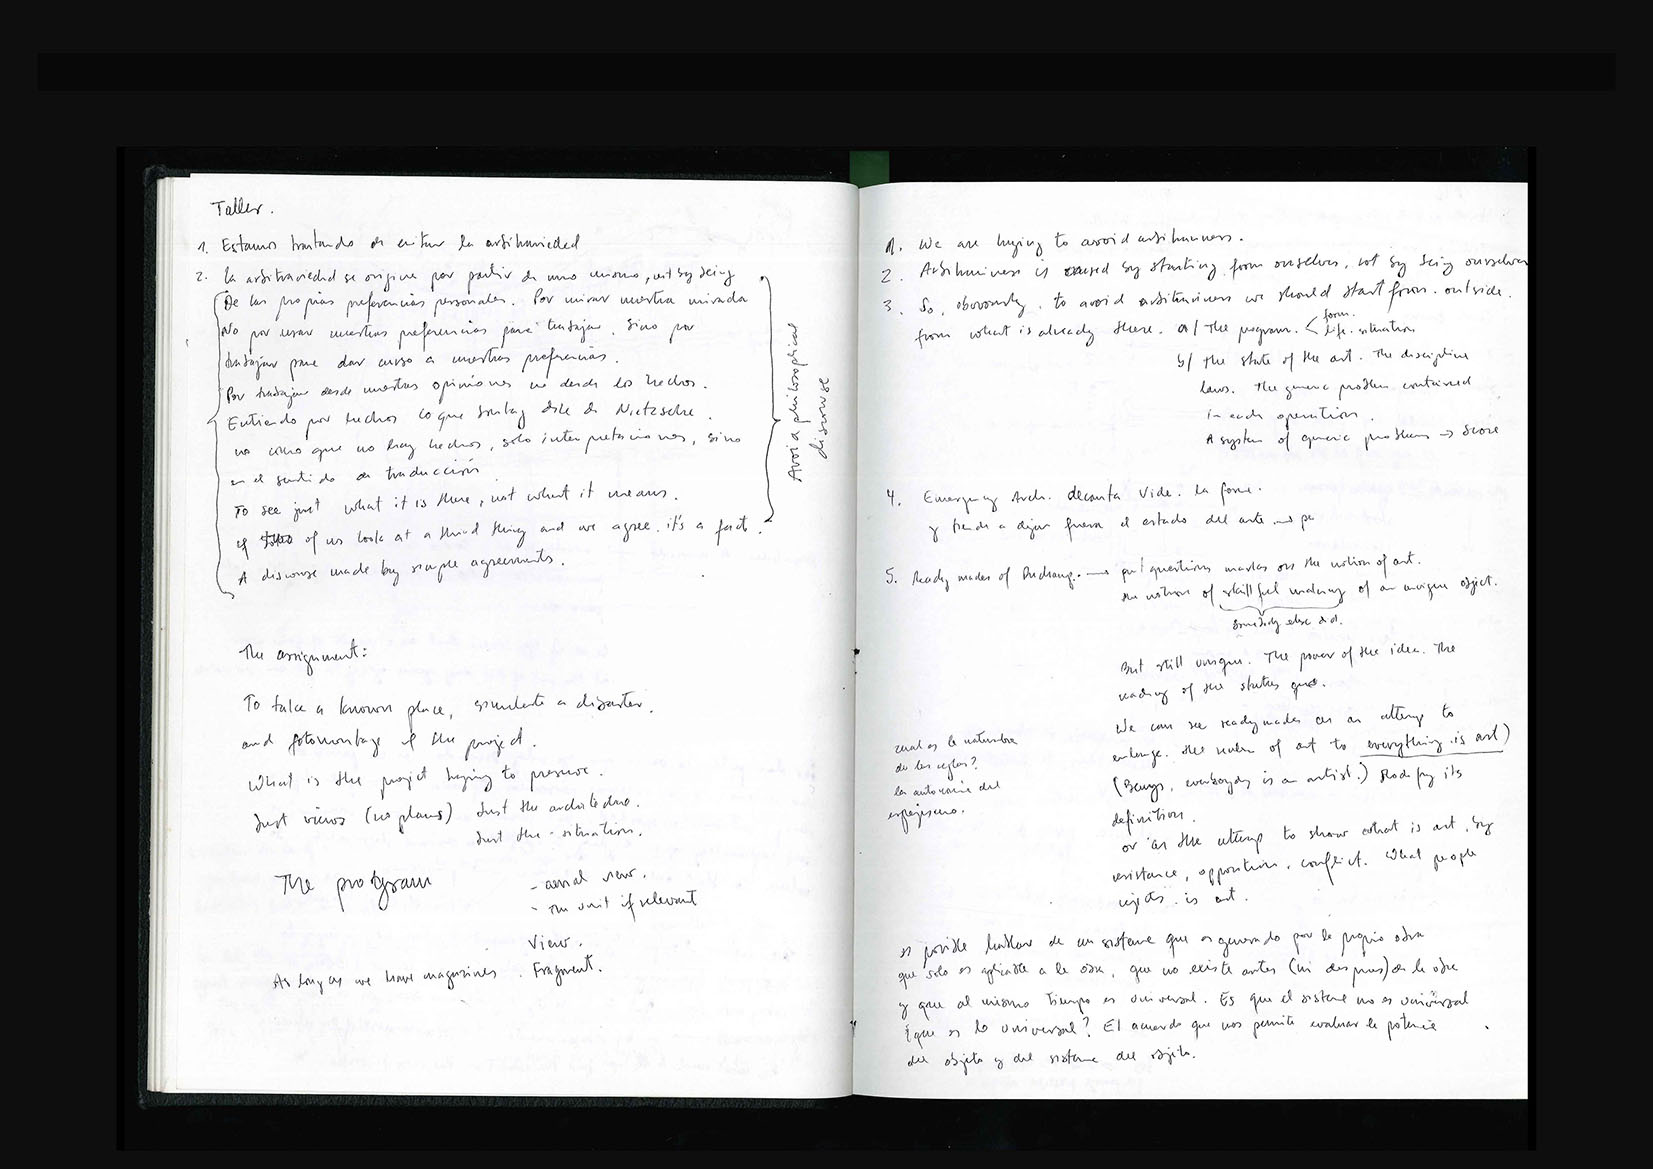 Taller.
1. Estamos tratando de evitar la arbitrariedad
2. la arbitrariedad se origina por partir de uno mismo, not by being
De las propias preferencias personales. Por mirar nuestra mirada
No por usar nuestras preferencias para trabajar, sino por
trabajar para dar curso a nuestras preferencias.
Por trabajar desde nuestras opiniones no desde los hechos.
Entiendo por hechos lo que Sontag dice de Nietzsche.
no como que no hay hechos, solo interpretaciones, sino
en el sentido de traducción
To see just what it is there, not what it means.
if two of us look at a third thing and we agree. it's a fact.
A discourse made by simple agreements.
Avoid philosophical
discourse
The assignment:
To take a known place, simulate a disaster,
and fotomontage of the project.
What is the project trying to preserve.
Just views (no plans) Just the architecture.
Just the situation.
The program
- aerial view.
- The unit if relevant
View.
As long as we have magazines. Fragment.
1. We are trying to avoid arbitrariness.
2. Arbitrariness is caused by starting from ourselves, not by being ourselves
3. So, obviously, to avoid arbitrariness we should start from outside.
from what is already there. a/ The program. < form.
life. situation
b/ the state of the art. The discipline
laws. The generic problem contained
in each operation.
A system of generic problems → Score
4. Emergency Arch. decanta Vida. la forma.
y tiende a dejar fuera el estado del arte → pa
5. Ready mades of Duchamp. → put questions marks on the notion of art.
the notion of skillful making of an unique object.
Somebody else did.
But still unique. The power of the idea. The
reading of the status quo.
We can see readymades as an attemp to
enlarge the realm of art to everything is art)
(Beuys, everbody is an artist.) Modify its
definition.
or as the attemp to show what is art, by
resistance, opposition, conflict. What people
rejects is art.
cual es la naturaleza
de las reglas?
la autonomia del
es posible hablar de un sistema que es generado por la propia obra
que solo es aplicable a la obra, que no existe antes (ni despues) de la obra
y que al mismo tiempo es universal. Es que el sistema no es universal
¿que es lo universal? El acuerdo que nos permite evaluar la potencia
del objeto y del sistema del objeto.